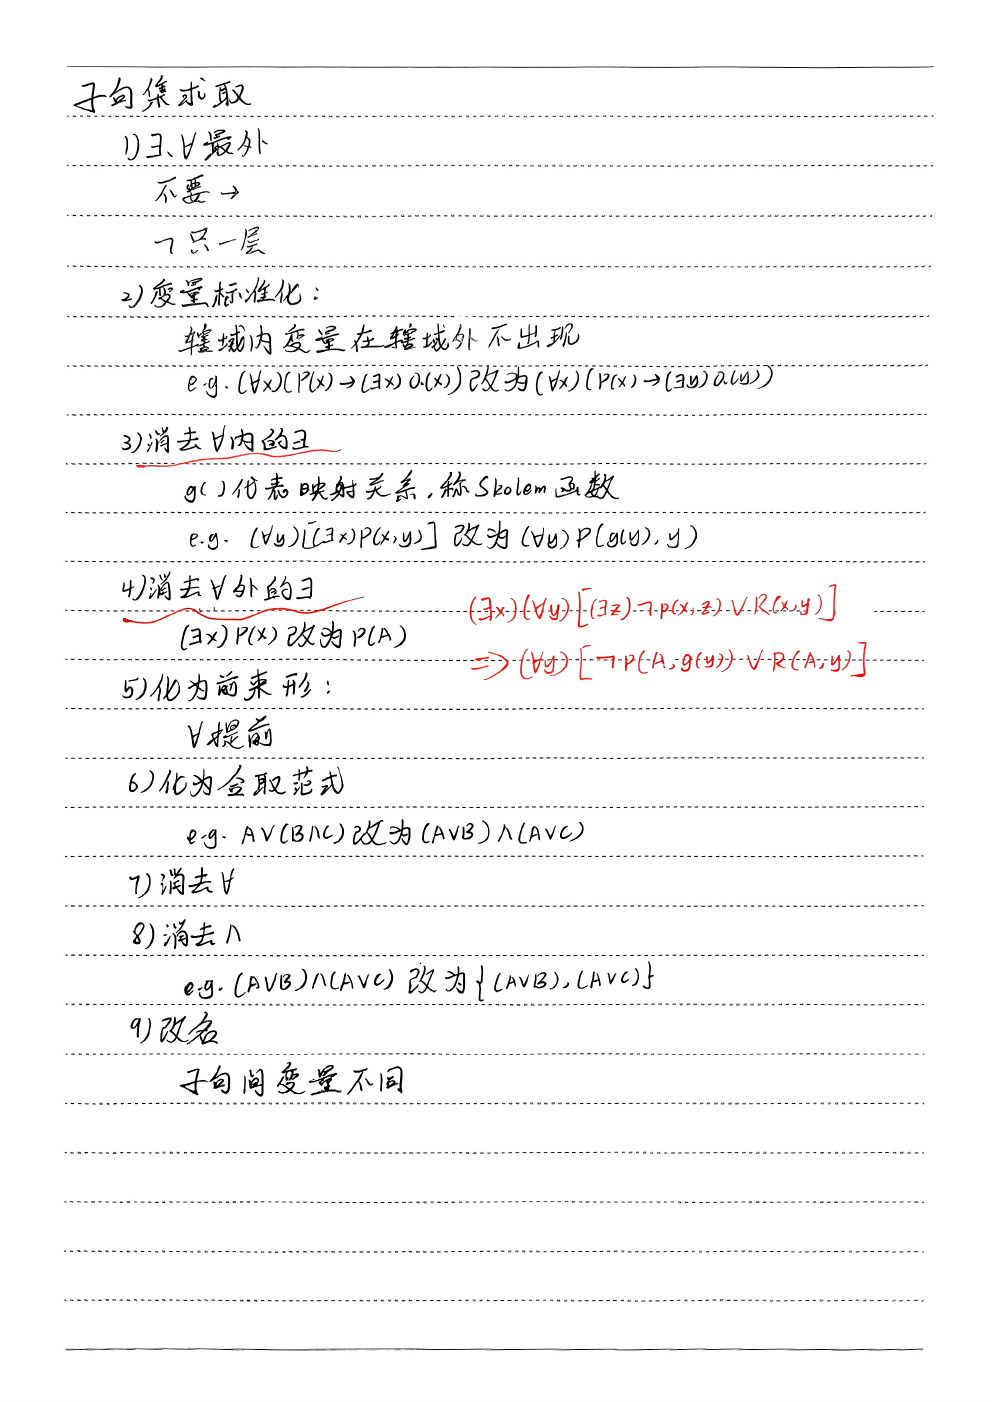 子句集求取
1)∃、∀最外
不要→
¬只一层
2)变量标准化：
辖域内变量在辖域外不出现
e.g. (∀x)(P(x)→(∃x)Q(x))改为(∀x)(P(x)→(∃y)Q(y))
3)消去∀内的∃
g()代表映射关系,称Skolem函数
e.g. (∀y)[(∃x)P(x,y)] 改为(∀y)P(g(y),y)
4)消去∀外的∃
(∃x)(∀y)[(∃z)¬P(x,z)∨R(x,y)]
(∃x)P(x)改为P(A)
=>(∀y)[¬P(A,g(y))∨R(A,y)]
5)化为前束形：
∀提前
6)化为合取范式
e.g. A∨(B∧C)改为(A∨B)∧(A∨C)
7)消去∀
8)消去∧
e.g. (A∨B)∧(A∨C) 改为{(A∨B),(A∨C)}
9)改名
子句间变量不同